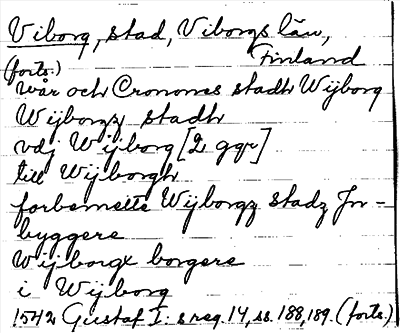 Viborg, stad, Viborgs län,
Finland
(forts.)
wår och Cronones stadh Wijborg
Wijborgz stadh
vdj Wijborg [2 ggr]
till Wijborgh
forbemelte Wijborgz stadz Jn-
byggere
Wijborgx borgere
i Wijborg
1542 Gustaf I:s reg. 14, ss. 188, 189. (forts.)